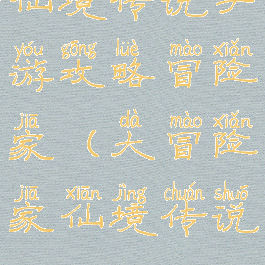 仙境传说手
yóu gōng lüè mào xiǎn
游攻略冒险
jiā dà mào xiǎn
家（大冒险
jiā xiān jìng chuán shuō
家仙境传说